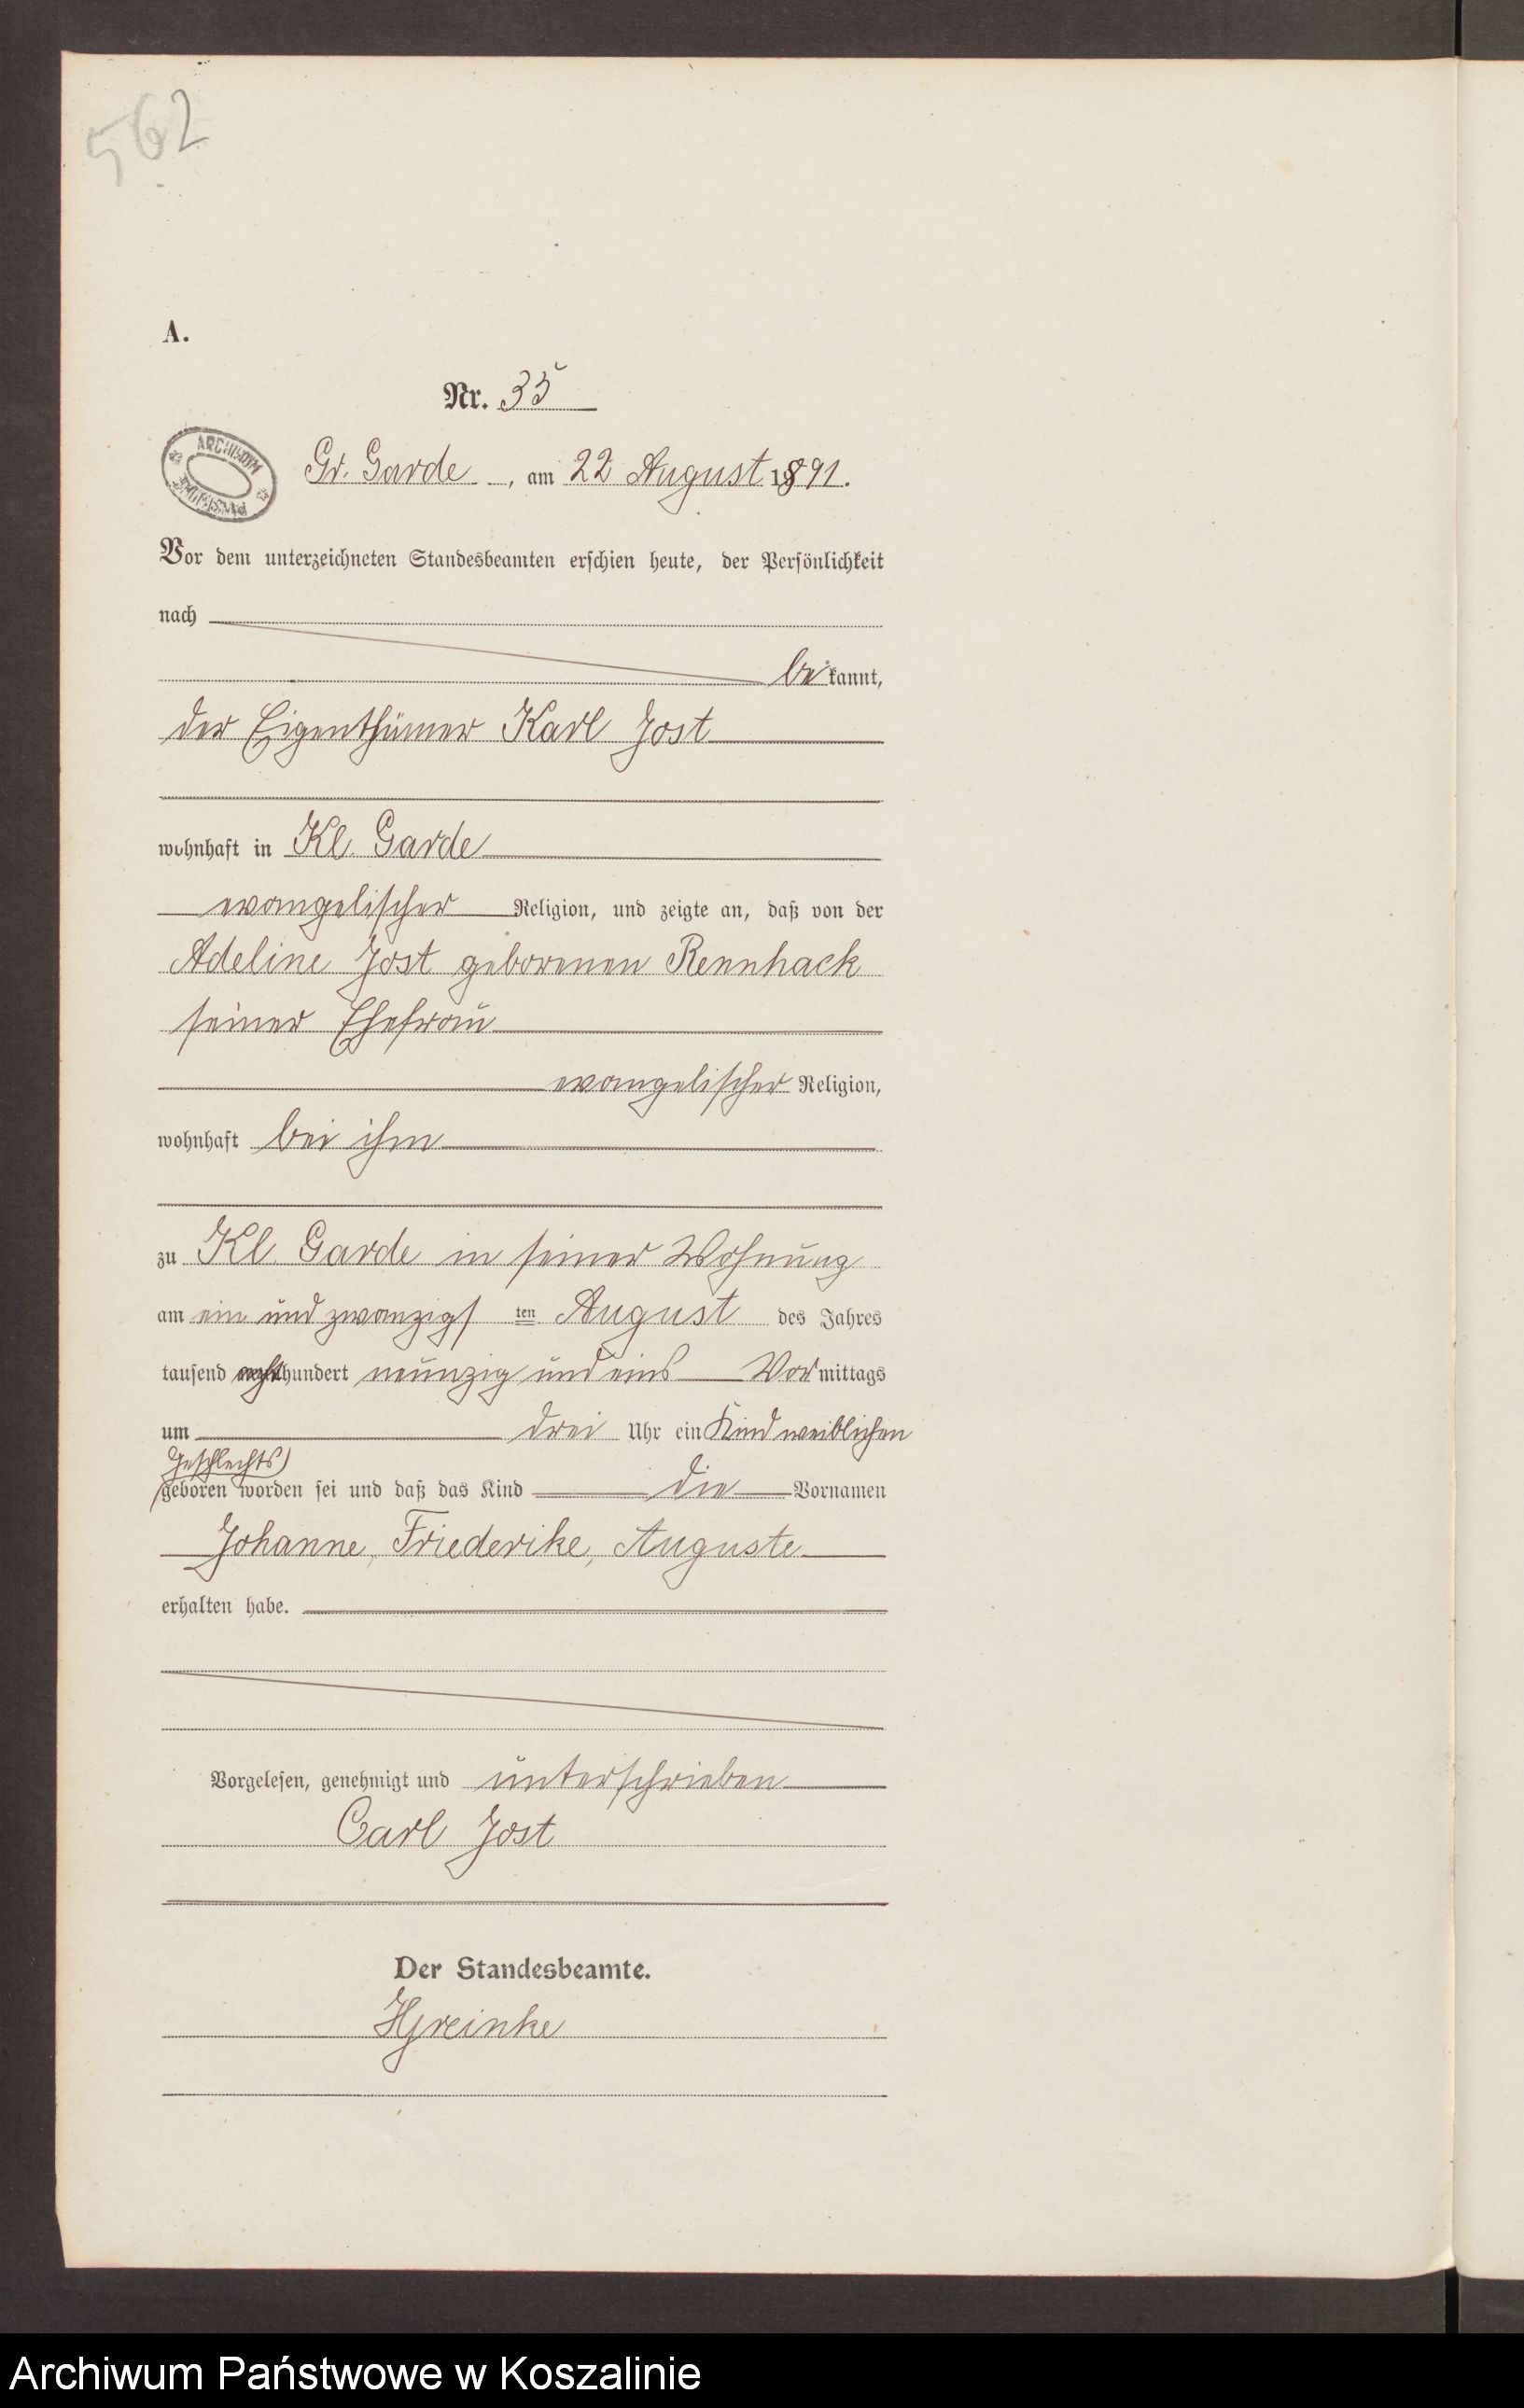 562
A.
Nr. 35
ARCHIWUM PAŃSTWOWE
Gr. Garde, am 22 August 1891.
Vor dem unterzeichneten Standesbeamten erschien heute, der Persönlichkeit
nach
be kannt,
der Eigenthümer Karl Jost
wohnhaft in Kl. Garde
evangelischer Religion, und zeigte an, daß von der
Adeline Jost geborenen Rennhack
seiner Ehefrau
evangelischer Religion,
wohnhaft bei ihm
zu Kl. Garde in seiner Wohnung
am ein und zwanzigs ten August des Jahres
tausend achthundert neunzig und eins Vormittags
um drei Uhr ein Kind weiblichen
Geschlechts)
geboren worden sei und daß das Kind die Vornamen
Johanne, Friederike, Auguste
erhalten habe.
Vorgelesen, genehmigt und unterschrieben
Carl Jost
Der Standesbeamte.
Archiwum Państwowe w Koszalinie